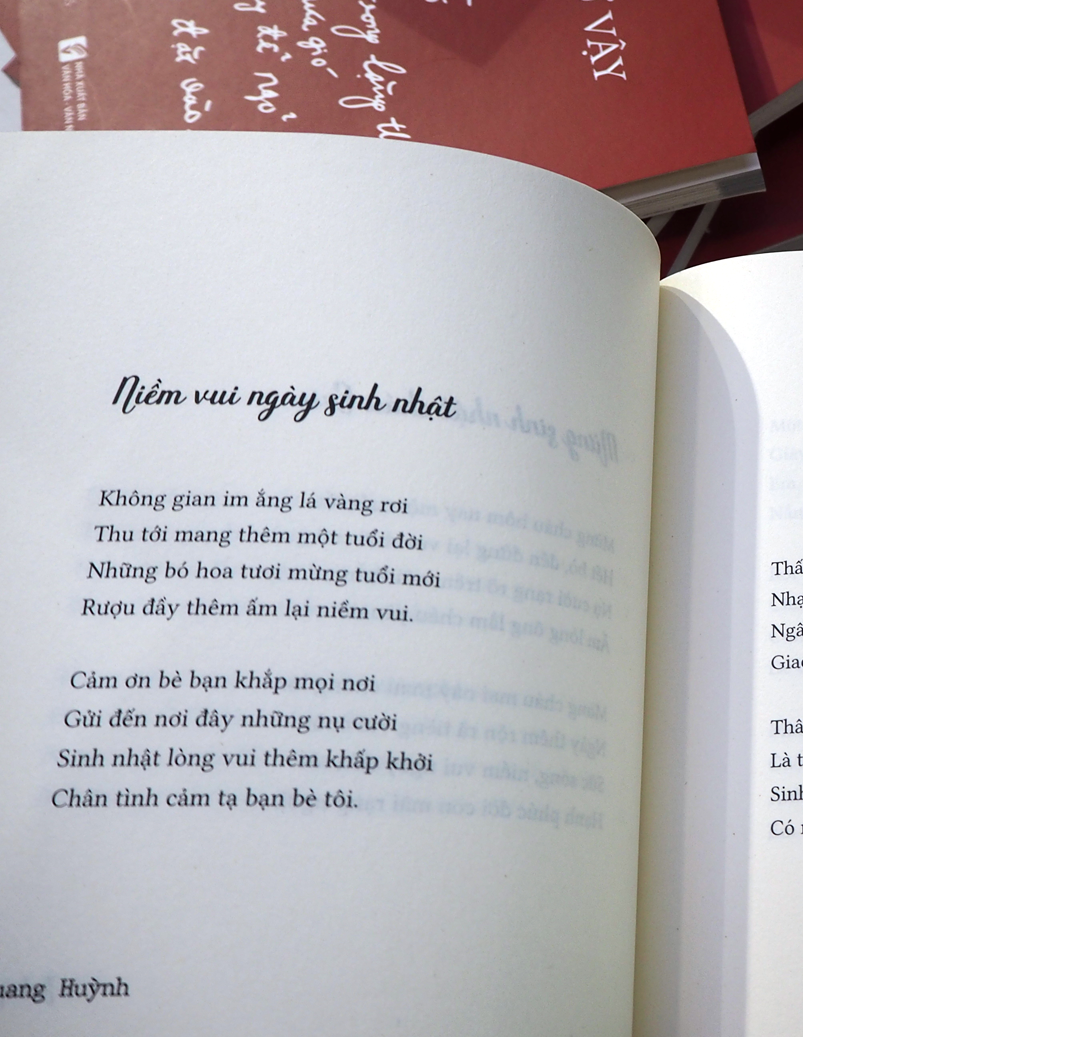 VẬY
NHÀ XUẤT BẢN
để ngỏ
Niềm vui ngày sinh nhật
Không gian im ắng lá vàng rơi
Thu tới mang thêm một tuổi đời
Những bó hoa tươi mừng tuổi mới
Rượu đầy thêm ấm lại niềm vui.
Cảm ơn bè bạn khắp mọi nơi
Gửi đến nơi đây những nụ cười
Sinh nhật lòng vui thêm khấp khởi
Chân tình cảm tạ bạn bè tôi.
Huỳnh
Là
Có